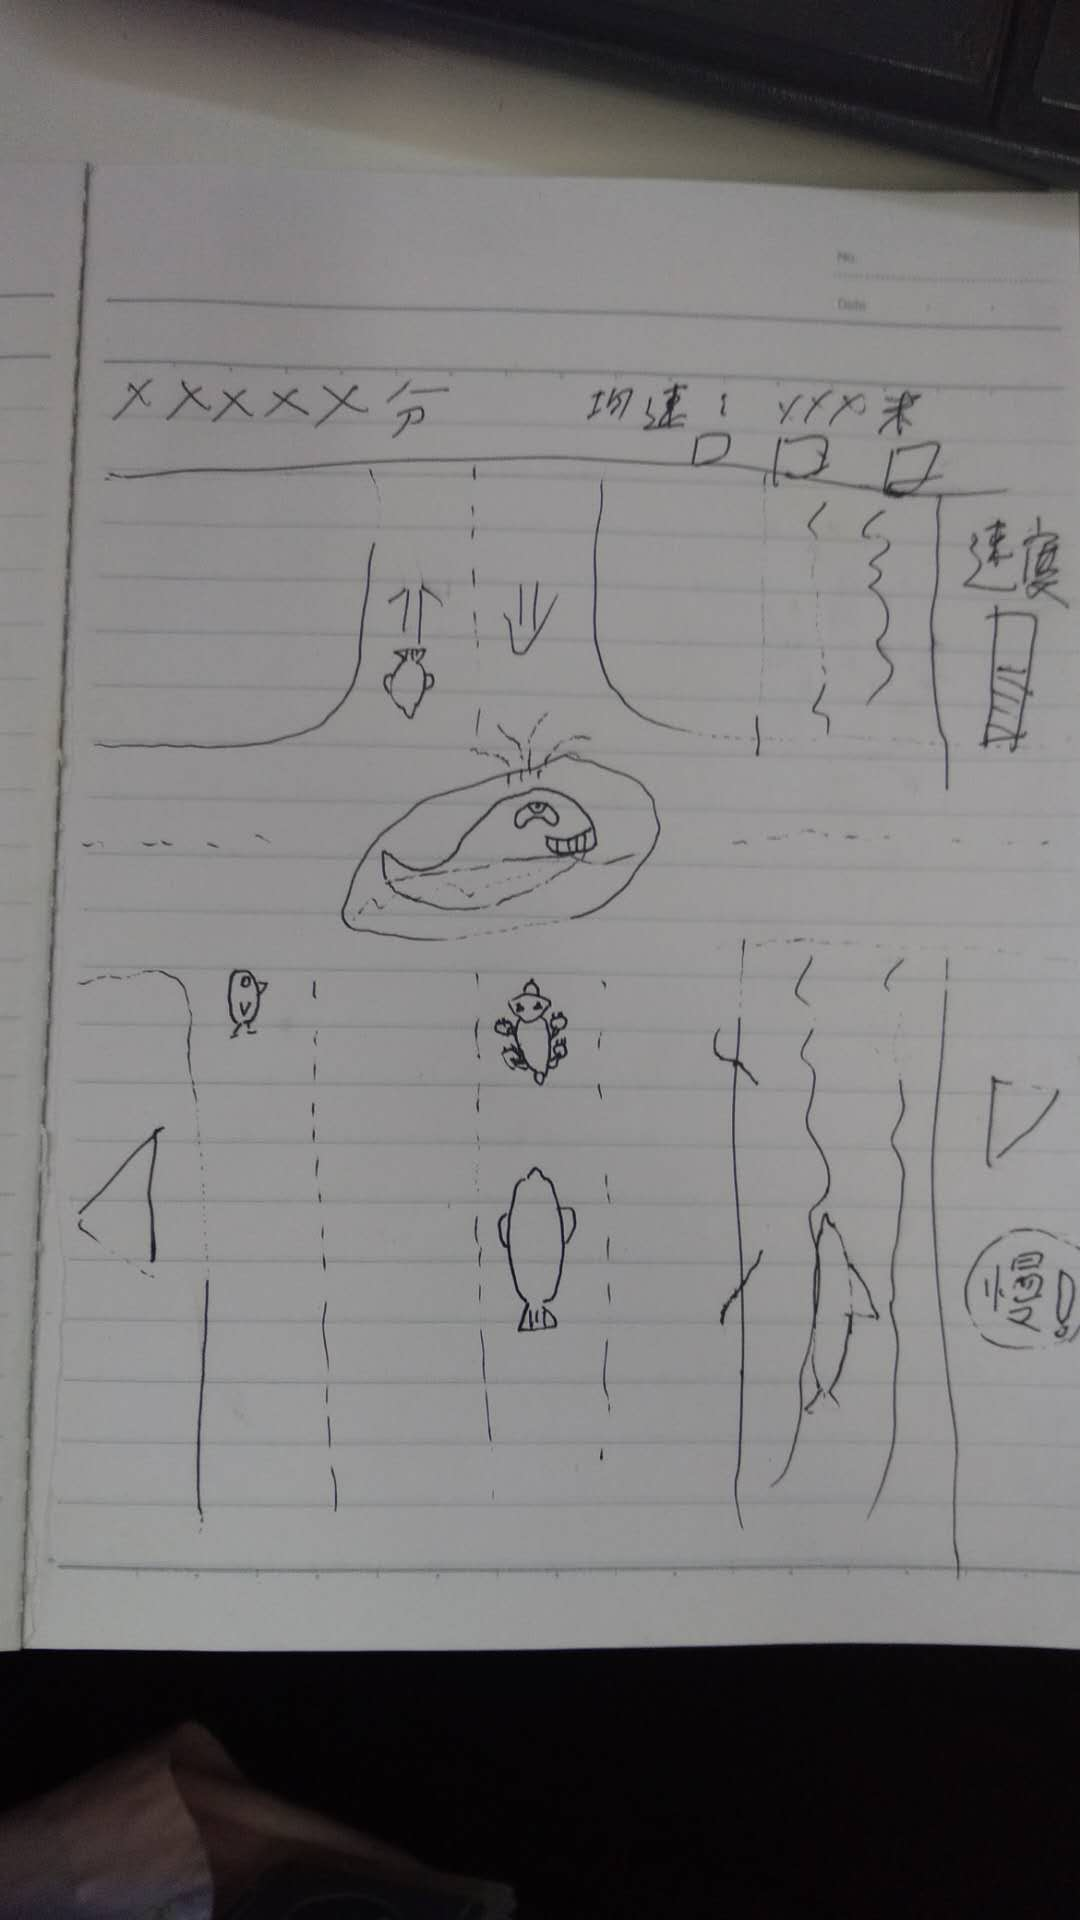 No.
Date
XXXXX分 均速：XXX米
速度
慢!